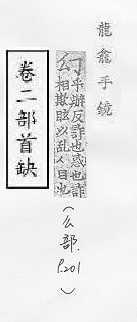 龍龕手鏡
丁乎辦反詐也惑也詐
么相欺眩以乱人目也
(幺部.
P.201
)
卷二部首缺